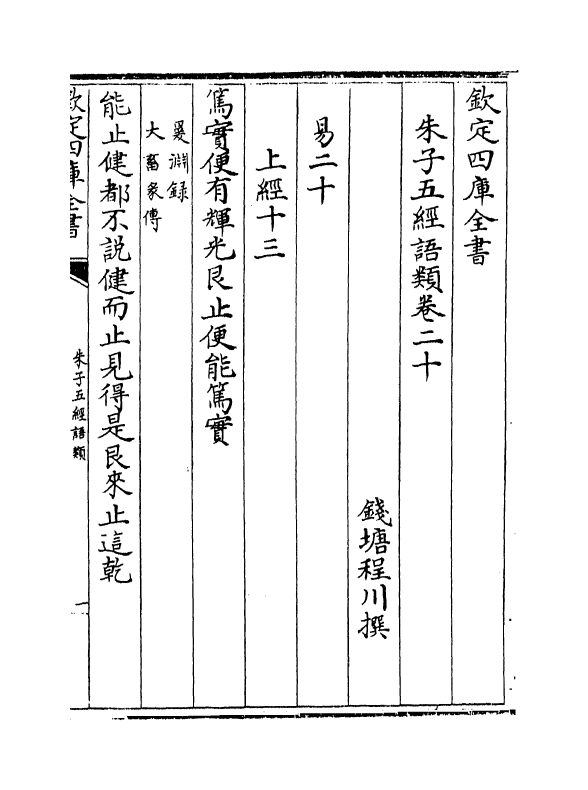 欽定四庫全書
朱子五經語類卷二十
錢塘程川撰
易二十
上經十三
篤實便有輝光艮止便能篤實
㬊淵録
大畜彖傳
能止健都不說健而止見得是艮來止這乾
欽定四庫全書
朱子五經語類
一